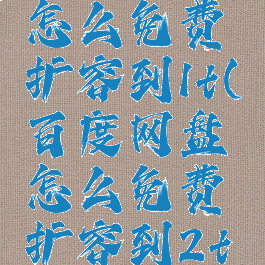 怎么免费
扩容到1t(
百度网盘
怎么免费
扩容到2t